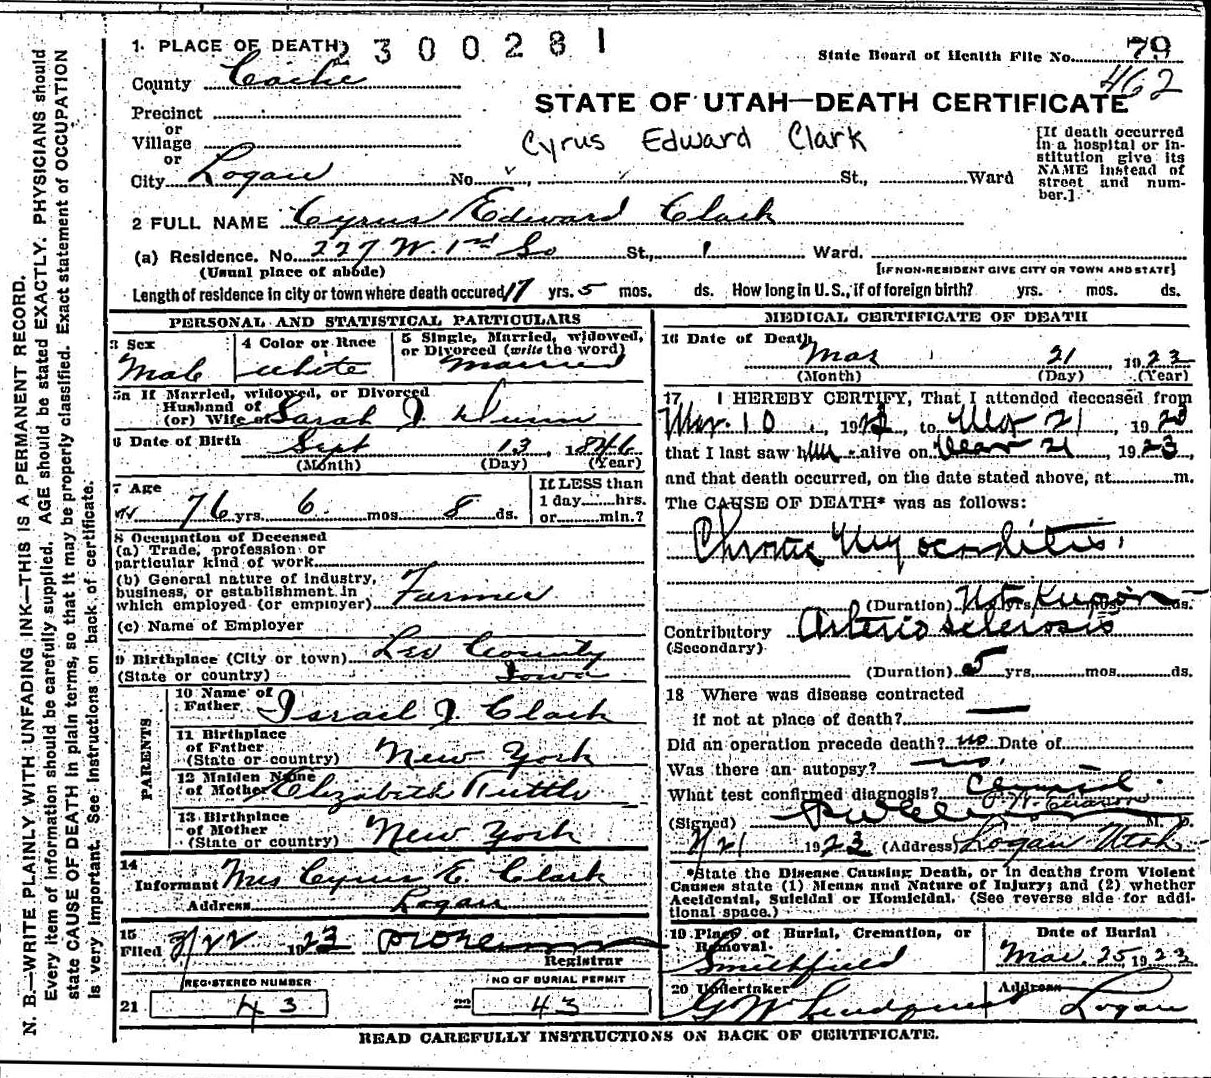 N. B.—WRITE PLAINLY WITH UNFADING INK—THIS IS A PERMANENT RECORD.
Every item of information should be carefully supplied. AGE should be stated EXACTLY. PHYSICIANS should
state CAUSE OF DEATH in plain terms, so that it may be properly classified. Exact statement of OCCUPATION
is very important. See instructions on back of certificate.
1. PLACE OF DEATH
2300281
State Board of Health File No. 79
462
County Cache
STATE OF UTAH—DEATH CERTIFICATE
Precinct
or
Village
or
Cyrus Edward Clark
[If death occurred
in a hospital or in-
stitution give its
NAME instead of
street and num-
ber.]
City Logan No. St., Ward
2 FULL NAME Cyrus Edward Clark
(a) Residence. No. 227 W. 1st So St., 1 Ward.
(Usual place of abode)
[IF NON-RESIDENT GIVE CITY OR TOWN AND STATE]
Length of residence in city or town where death occured 17 yrs. 5 mos. ds. How long in U.S., if of foreign birth? yrs. mos. ds.
PERSONAL AND STATISTICAL PARTICULARS
3 Sex
Male
4 Color or Race
White
5 Single, Married, widowed,
or Divorced (write the word)
Married
5a If Married, widowed, or Divorced
Husband of
(or) Wife of Sarah J. Dunn
6 Date of Birth Sept 13, 1846
(Month) (Day) (Year)
7 Age
76 yrs. 6 mos 8 ds.
If LESS than
1 day hrs.
or min.?
8 Occupation of Deceased
(a) Trade, profession or
particular kind of work
(b) General nature of industry,
business, or establishment in
which employed (or employer) Farmer
(c) Name of Employer
9 Birthplace (City or town) Lee County
(State or country) Iowa
PARENTS
10 Name of
Father Israel J. Clark
11 Birthplace
of Father
(State or country) New York
12 Maiden Name
of Mother Elizabeth Tuttle
13 Birthplace
of Mother
(State or country) New York
14
Informant Mrs Cyrus E. Clark
Address Logan
15
Filed 3/22 1923
Registrar
REGISTERED NUMBER
21 43
NO OF BURIAL PERMIT
22 43
MEDICAL CERTIFICATE OF DEATH
16 Date of Death Mar 21 1923
(Month) (Day) (Year)
17 I HEREBY CERTIFY, That I attended deceased from
Mar. 10, 1923, to Mar 21, 1923
that I last saw him alive on Mar 21, 1923,
and that death occurred, on the date stated above, at m.
The CAUSE OF DEATH* was as follows:
Chronic Myocarditis.
(Duration) Not known yrs. mos. ds.
Contributory Arterio sclerosis
(Secondary)
(Duration) 5 yrs. mos. ds.
18 Where was disease contracted
if not at place of death?
Did an operation precede death? no Date of
Was there an autopsy? no.
What test confirmed diagnosis? Clinical.
(Signed) M. D.
3/21 1923 (Address) Logan Utah
*State the Disease Causing Death, or in deaths from Violent
Causes state (1) Means and Nature of Injury; and (2) whether
Accidental, Suicidal or Homicidal. (See reverse side for addi-
tional space.)
19 Place of Burial, Cremation, or
Removal.
Smithfield
Date of Burial
Mar. 25, 1923
20 Undertaker
G W Lindquist
Address
Logan
READ CAREFULLY INSTRUCTIONS ON BACK OF CERTIFICATE.